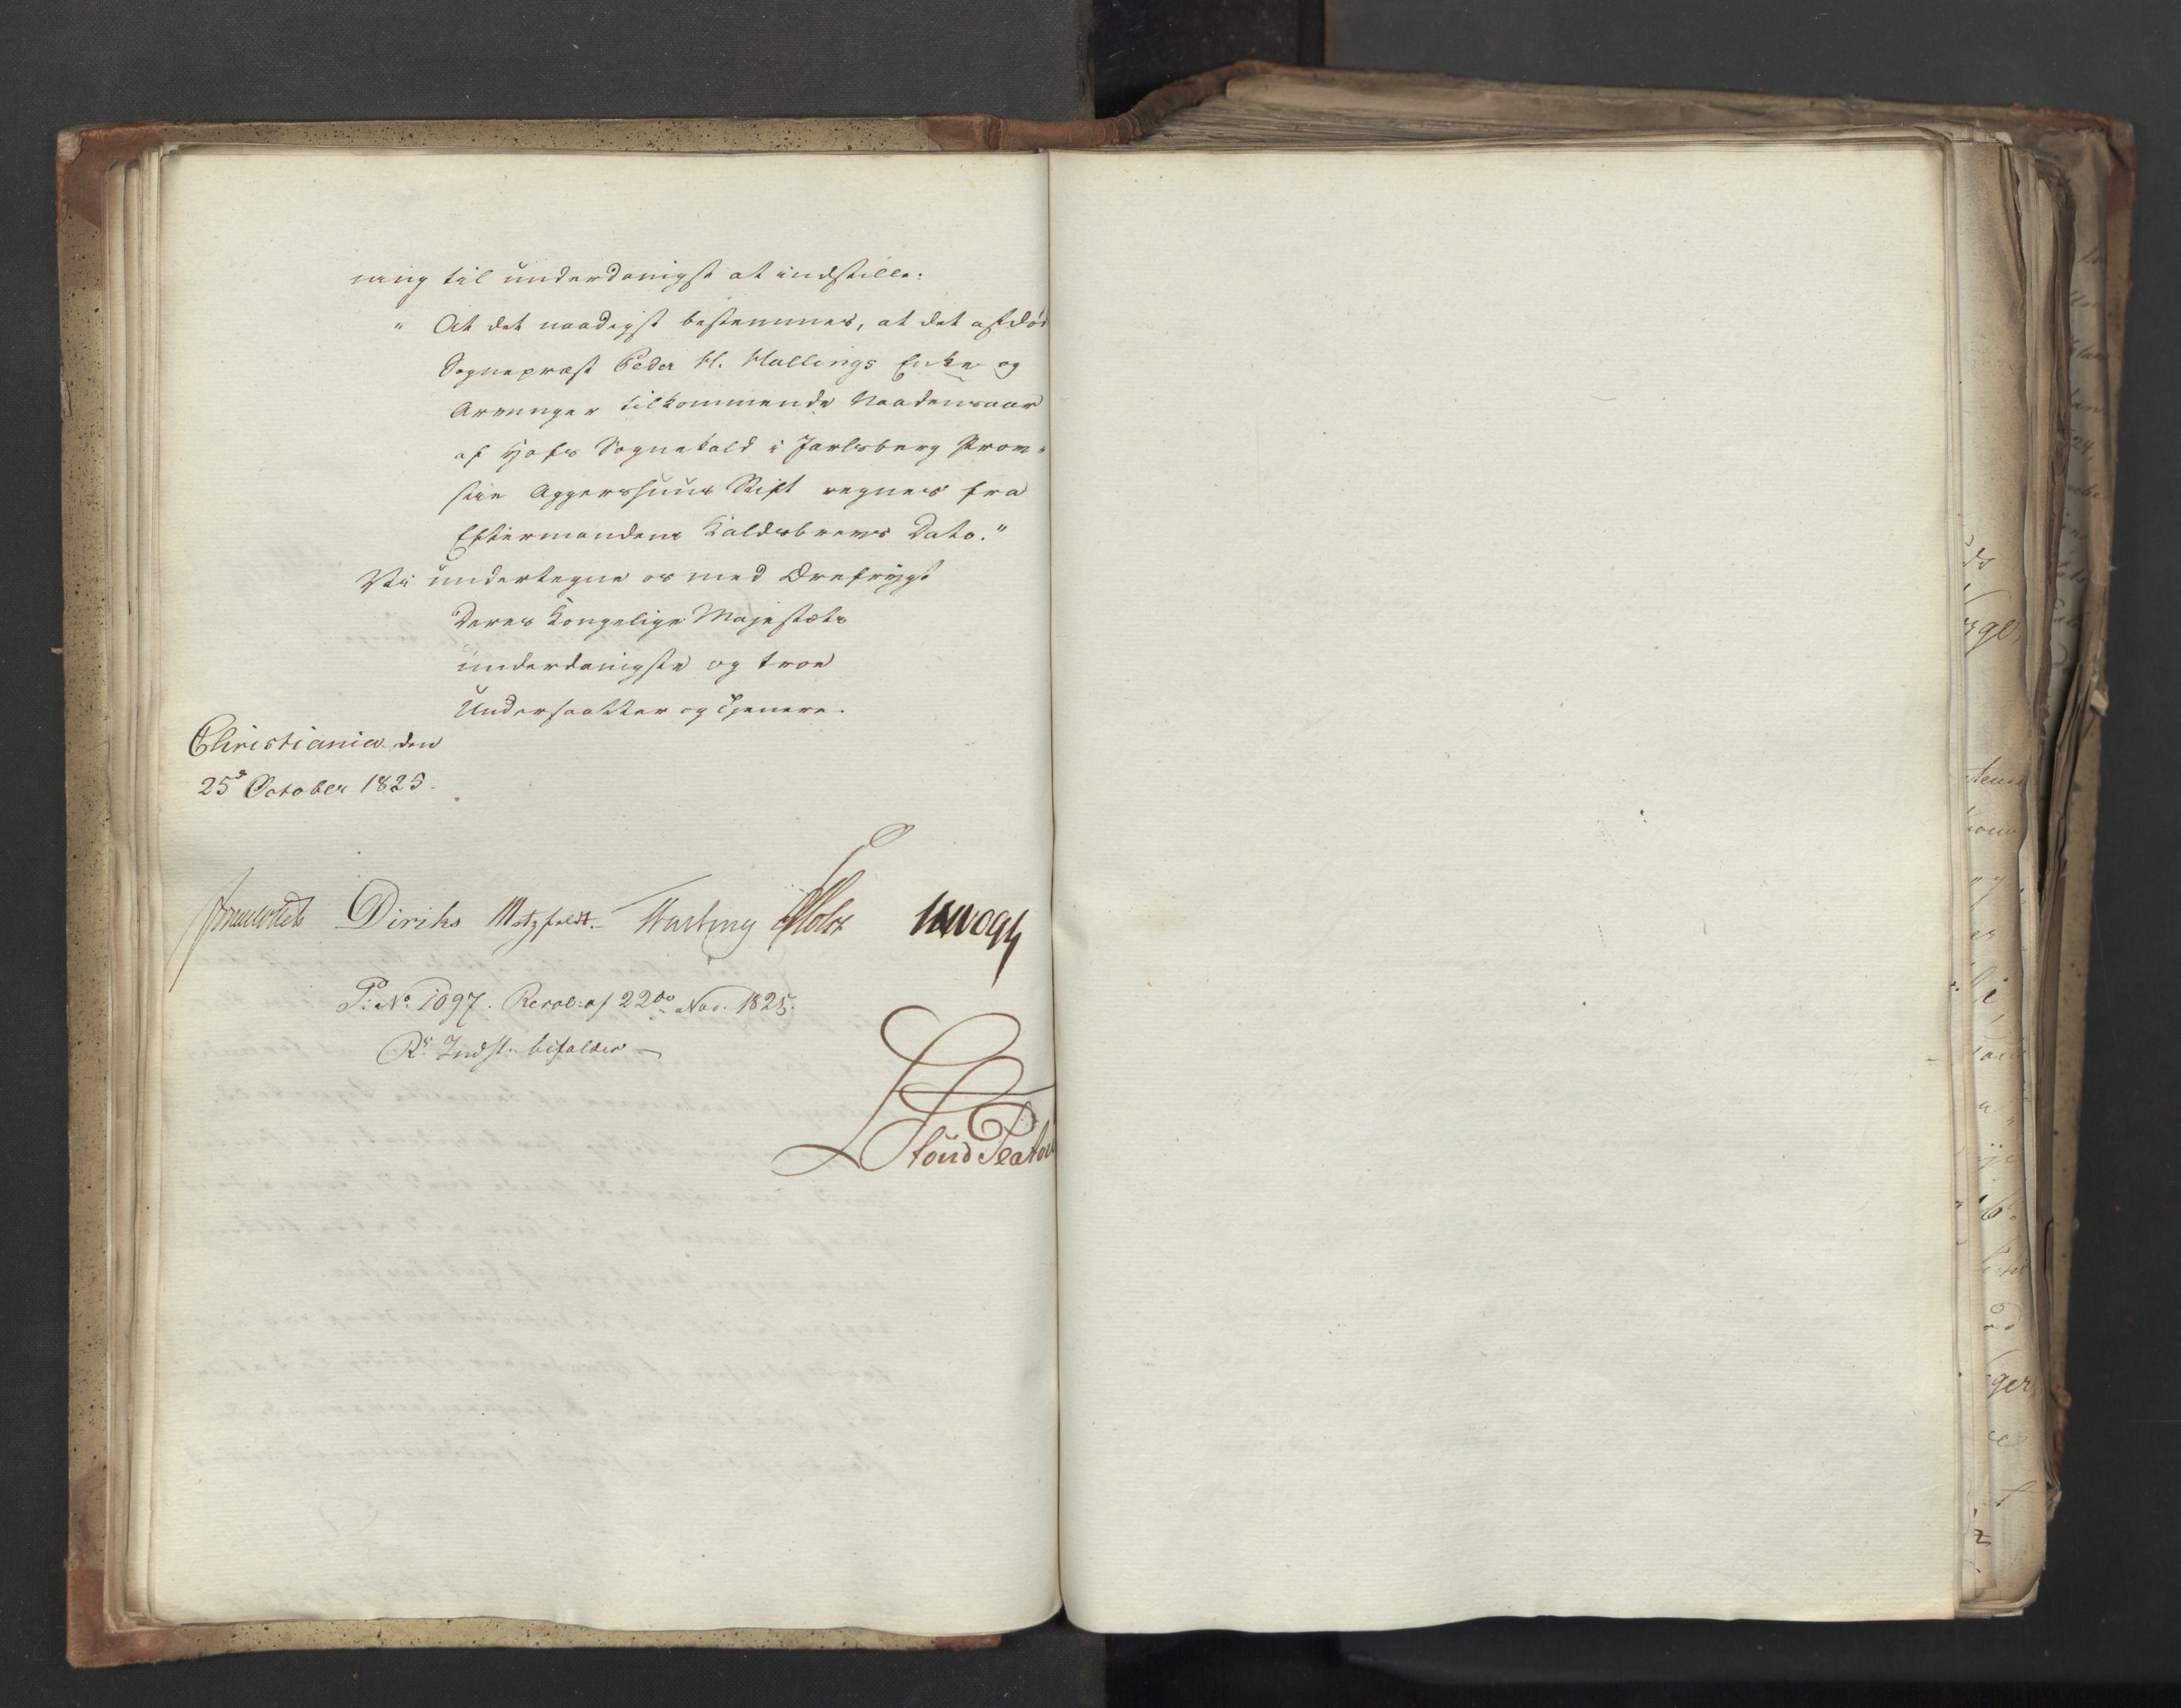 ning til underdanigst at indstille:
" At det naadigst bestemmes, at det afdød
Sognepræst Peder H. Hallings Enke og
Arvinger tilkommende Naadensaar
af Hofs Sognekald i Jarlsberg Prov-
stie Aggershuus Stift regnes fra
Eftermandens Kaldsbrevs Dato."
Vi undertegne os med Ærefrygt
Deres Kongelige Majestæts
underdanigste og troe
Undersaatter og Tjenere.
Christiania den
25d October 1825.
Diriks Motzfeldt. Holst
P: No 1097. Resol: af 22de Nov. 1825.
Rs Indst. bifaldes